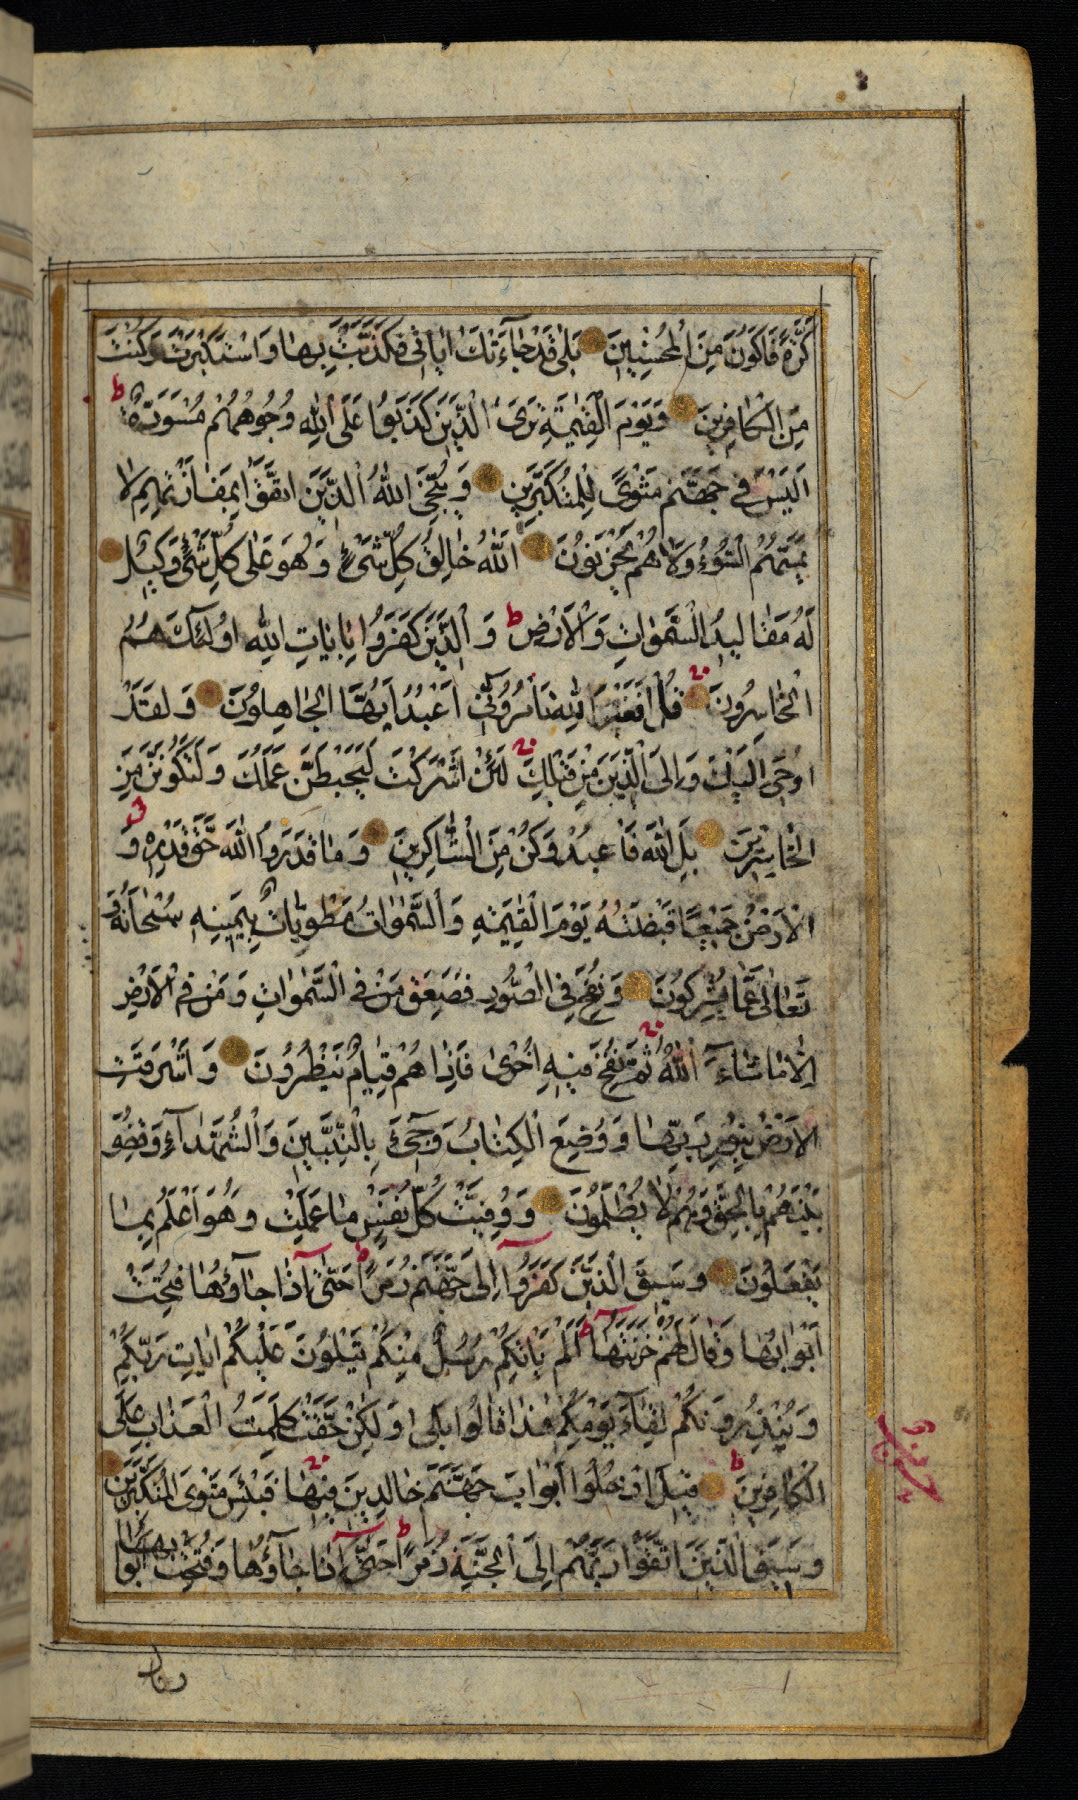 كَرَّةً فَاَكُونَ مِنَ الْمُحْسِنِينَ بَلٰى قَدْ جَاءَتْكَ اٰيَاتِى فَكَذَّبْتَ بِهَا وَاسْتَكْبَرْتَ وَكُنْتَ
مِنَ الْكٰافِرِينَ وَيَوْمَ الْقِيٰمَةِ تَرَى الَّذِينَ كَذَبُوا عَلَى اللّٰهِ وُجُوهُهُمْ مُسْوَدَّةٌ ط
اَلَيْسَ فِى جَهَنَّمَ مَثْوًى لِلْمُتَكَبِّرِينَ وَيُنَجِّى اللّٰهُ الَّذِينَ اتَّقَوْا بِمَفٰازَتِهِمْ لٰا
يَمَسُّهُمُ السُّوٓءُ وَلٰا هُمْ يَحْزَنُونَ اَللّٰهُ خٰالِقُ كُلِّ شَىْءٍ وَهُوَ عَلٰى كُلِّ شَىْءٍ وَكِيلٌ
لَهُ مَقٰالِيدُ السَّمٰوٰاتِ وَالْاَرْضِ ط وَالَّذِينَ كَفَرُوا بِاٰيٰاتِ اللّٰهِ اُولٰئِكَ هُمُ
الْخٰاسِرُونَ قُلْ اَفَغَيْرَ اللّٰهِ تَأْمُرُوٓنِّى اَعْبُدُ اَيُّهَا الْجٰاهِلُونَ وَلَقَدْ
اُوحِىَ اِلَيْكَ وَاِلَى الَّذِينَ مِنْ قَبْلِكَ لَئِنْ اَشْرَكْتَ لَيَحْبَطَنَّ عَمَلُكَ وَلَتَكُونَنَّ مِنَ
الْخٰاسِرِينَ بَلِ اللّٰهَ فَاعْبُدْ وَكُنْ مِنَ الشّٰاكِرِينَ وَمٰا قَدَرُوا اللّٰهَ حَقَّ قَدْرِهِ وَ
الْاَرْضُ جَمِيعًا قَبْضَتُهُ يَوْمَ الْقِيٰمَةِ وَالسَّمٰوٰاتُ مَطْوِيّٰاتٌ بِيَمِينِهِ سُبْحٰانَهُ وَ
تَعٰالٰى عَمّٰا يُشْرِكُونَ وَنُفِخَ فِى الصُّورِ فَصَعِقَ مَنْ فِى السَّمٰوٰاتِ وَمَنْ فِى الْاَرْضِ
اِلّٰا مٰا شٰاءَ اللّٰهُ ثُمَّ نُفِخَ فِيهِ اُخْرٰى فَاِذٰا هُمْ قِيٰامٌ يَنْظُرُونَ وَاَشْرَقَتِ
الْاَرْضُ بِنُورِ رَبِّهٰا وَوُضِعَ الْكِتٰابُ وَجِىٓءَ بِالنَّبِيِّينَ وَالشُّهَدٰآءِ وَقُضِىَ
بَيْنَهُمْ بِالْحَقِّ وَهُمْ لٰا يُظْلَمُونَ وَوُفِّيَتْ كُلُّ نَفْسٍ مٰا عَمِلَتْ وَهُوَ اَعْلَمُ بِمٰا
يَفْعَلُونَ وَسِيقَ الَّذِينَ كَفَرُوا اِلٰى جَهَنَّمَ زُمَرًا ط حَتّٰى اِذٰا جٰآؤُهٰا فُتِحَتْ
اَبْوٰابُهٰا وَقٰالَ لَهُمْ خَزَنَتُهٰا اَلَمْ يَأْتِكُمْ رُسُلٌ مِنْكُمْ يَتْلُونَ عَلَيْكُمْ اٰيٰاتِ رَبِّكُمْ
وَيُنْذِرُونَكُمْ لِقٰآءَ يَوْمِكُمْ هٰذٰا قٰالُوا بَلٰى وَلٰكِنْ حَقَّتْ كَلِمَتُ الْعَذٰابِ عَلَى
الْكٰافِرِينَ ط قِيلَ ادْخُلُوا اَبْوٰابَ جَهَنَّمَ خٰالِدِينَ فِيهٰا فَبِئْسَ مَثْوَى الْمُتَكَبِّرِينَ
وَسِيقَ الَّذِينَ اتَّقَوْا رَبَّهُمْ اِلَى الْجَنَّةِ زُمَرًا ط حَتّٰى اِذٰا جٰآؤُهٰا وَفُتِحَتْ اَبْوٰابُهٰا